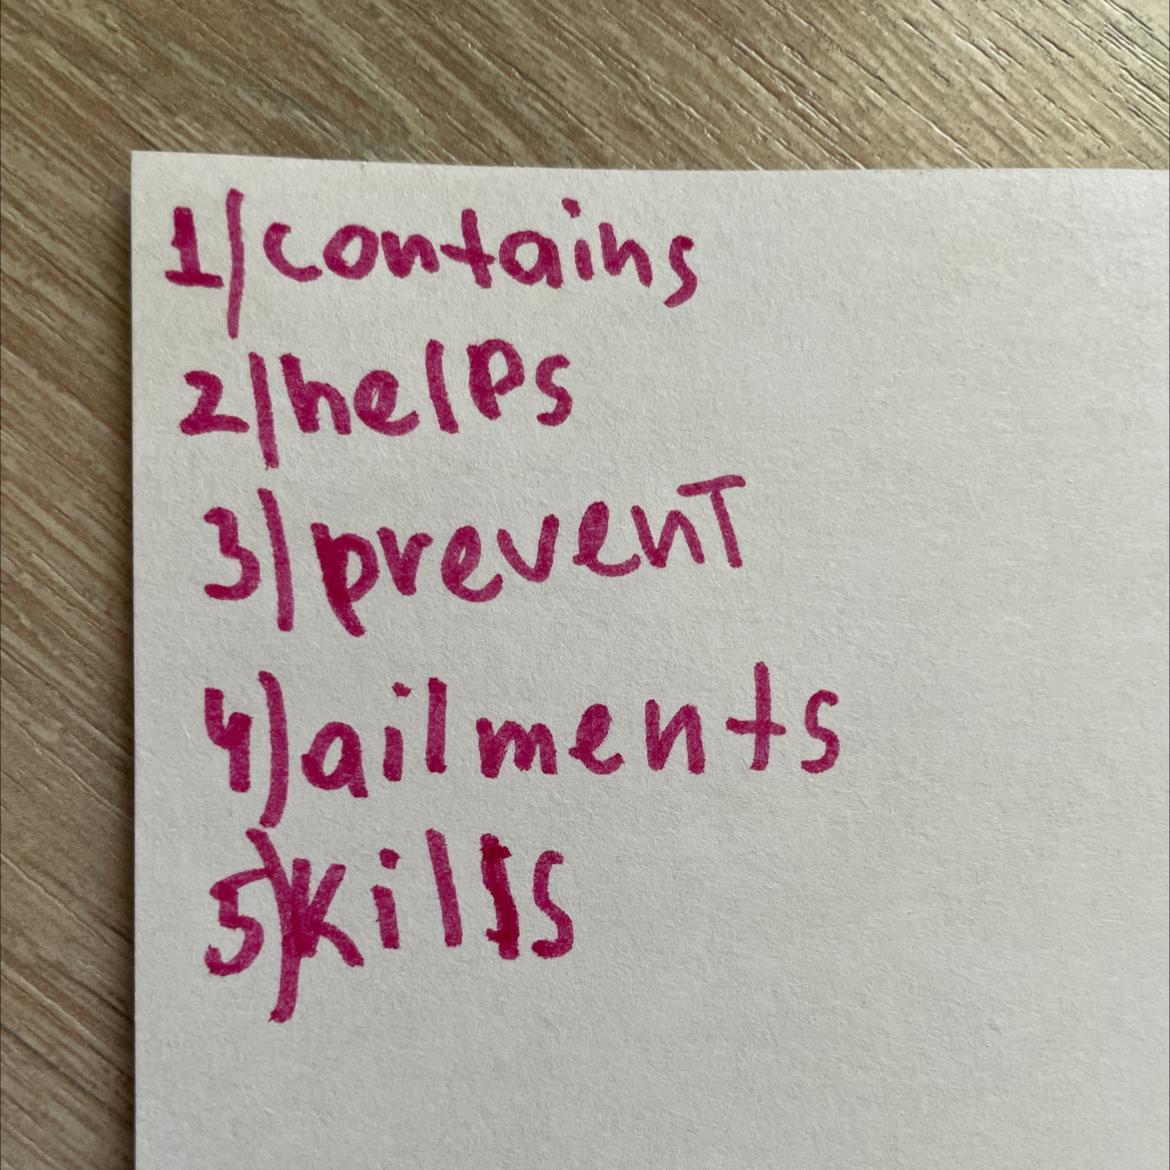 1/contains
2/helps
3/prevent
4)ailments
5)kills